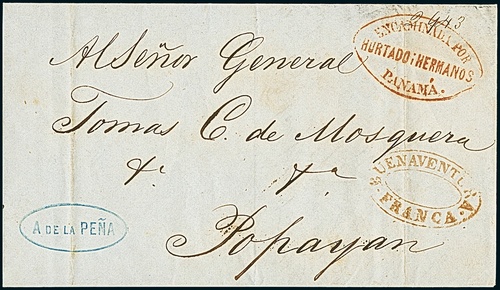 2943
ENCAMINADA POR
HURTADO I HERMANOS
PANAMÁ.
Al Señor General
Tomas C. de Mosquera
&. &a
BUENAVENTURA
FRANCA.
A DE LA PEÑA
Popayan